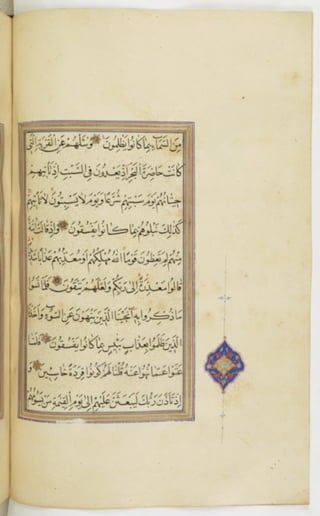 مِنَ السَّمَاءِ بِمَا كَانُوا يَظْلِمُونَ وَسْئَلْهُمْ عَنِ الْقَرْيَةِ الَّتِي
كَانَتْ حَاضِرَةَ الْبَحْرِ إِذْ يَعْدُونَ فِي السَّبْتِ إِذْ تَأْتِيهِمْ
حِيتَانُهُمْ يَوْمَ سَبْتِهِمْ شُرَّعًا وَيَوْمَ لَا يَسْبِتُونَ لَا تَأْتِيهِمْ
كَذَلِكَ نَبْلُوهُمْ بِمَا كَانُوا يَفْسُقُونَ وَإِذْ قَالَتْ أُمَّةٌ
مِنْهُمْ لِمَ تَعِظُونَ قَوْمًا اللَّهُ مُهْلِكُهُمْ أَوْ مُعَذِّبُهُمْ عَذَابًا شَدِيدًا
قَالُوا مَعْذِرَةً إِلَى رَبِّكُمْ وَلَعَلَّهُمْ يَتَّقُونَ فَلَمَّا نَسُوا
مَا ذُكِّرُوا بِهِ أَنْجَيْنَا الَّذِينَ يَنْهَوْنَ عَنِ السُّوءِ وَأَخَذْنَا
الَّذِينَ ظَلَمُوا بِعَذَابٍ بَئِيسٍ بِمَا كَانُوا يَفْسُقُونَ فَلَمَّا
عَتَوْا عَنْ مَا نُهُوا عَنْهُ قُلْنَا لَهُمْ كُونُوا قِرَدَةً خَاسِئِينَ وَ
إِذْ تَأَذَّنَ رَبُّكَ لَيَبْعَثَنَّ عَلَيْهِمْ إِلَى يَوْمِ الْقِيَمَةِ مَنْ يَسُومُهُمْ